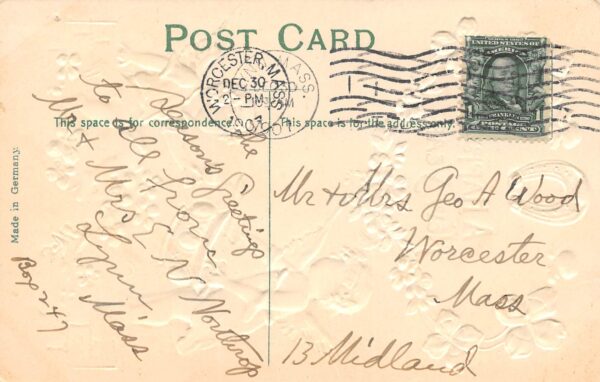 POST CARD
WORCESTER, MASS.
DEC 30
2-PM
1907
MASS.
1
UNITED STATES OF AMERICA
FRANKLIN
POSTAGE
ONE CENT
This space is for correspondence.
This space is for the address only.
Made in Germany.
The
Season's Greetings
to all from
Mr. & Mrs E N Northrop
Lynn Mass
Box 247
Mr & Mrs Geo A Wood
Worcester
Mass
13 Midland